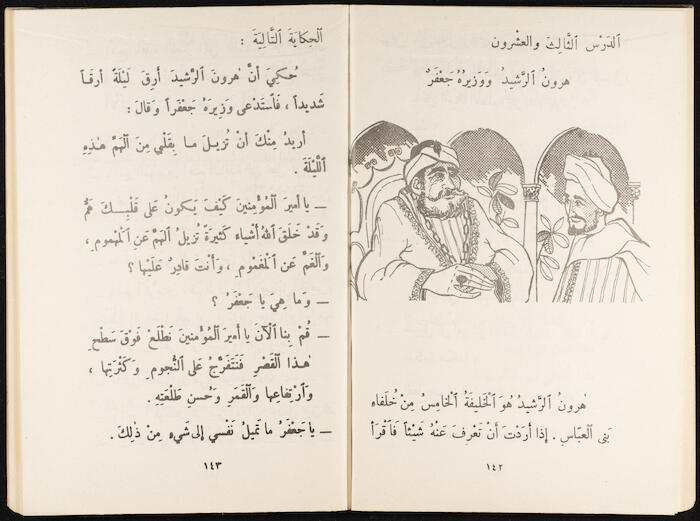 اَلدَّرْسُ اَلثَّالِثُ وَالعِشْرُون
هرونُ اَلرَّشيدُ وَوَزيرُهُ جَعْفَرٌ
هرونُ اَلرَّشيدُ هُوَ اَلْخَليفَةُ اَلْخامِسُ مِنْ خُلَفاءِ
بَني اَلعبّاسِ . إذا أرَدْتَ أنْ تَعْرِفَ عَنْهُ شَيْئاً فَاَقْرَأ
١٤٢
اَلحِكايَةَ اَلتَّالِيَةَ :
حُكِيَ أنَّ هرونَ اَلرَّشيدَ أرِقَ لَيْلَةً أرَقاً
شَديداً ، فَاَسْتَدْعى وَزيرَهُ جَعْفَراً وَقالَ :
أريدُ مِنْكَ أنْ تُزيلَ ما بِقَلْبي مِنَ اَلْهَمِّ هذِهِ
اَللَّيْلَةَ .
ـ يا أميرَ اَلْمُؤْمِنينَ كَيْفَ يَكونُ عَلى قَلْبِكَ هَمٌّ
وَقَدْ خَلَقَ اَللهُ أشْياءَ كَثيرَةً تُزيلُ اَلْهَمَّ عَنِ اَلْمَهْمومِ ،
وَاَلْغَمَّ عَنِ اَلْمَغْمومِ ، وَأنْتَ قادِرٌ عَلَيْها ؟
ـ وَما هِيَ يا جَعْفَرُ ؟
ـ قُمْ بِنا اَلْآنَ يا أميرَ اَلْمُؤْمِنينَ نَطْلَعْ فَوْقَ سَطْحِ
هذا اَلْقَصْرِ فَنَتَفَرَّجُ عَلى اَلنُّجومِ وَكَثْرَتِها ،
وَاَرْتِفاعِها وَاَلْقَمَرِ وَحُسْنِ طَلْعَتِهِ .
ـ يا جَعْفَرُ ما تَميلُ نَفْسي إلى شَيْءٍ مِنْ ذلِكَ .
١٤٣